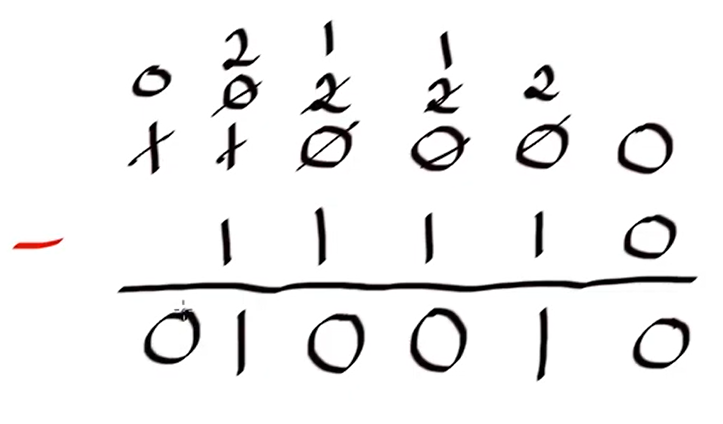 2 1 1
0 0 2 2 2
1 1 0 0 0 0
- 1 1 1 1 0
0 1 0 0 1 0